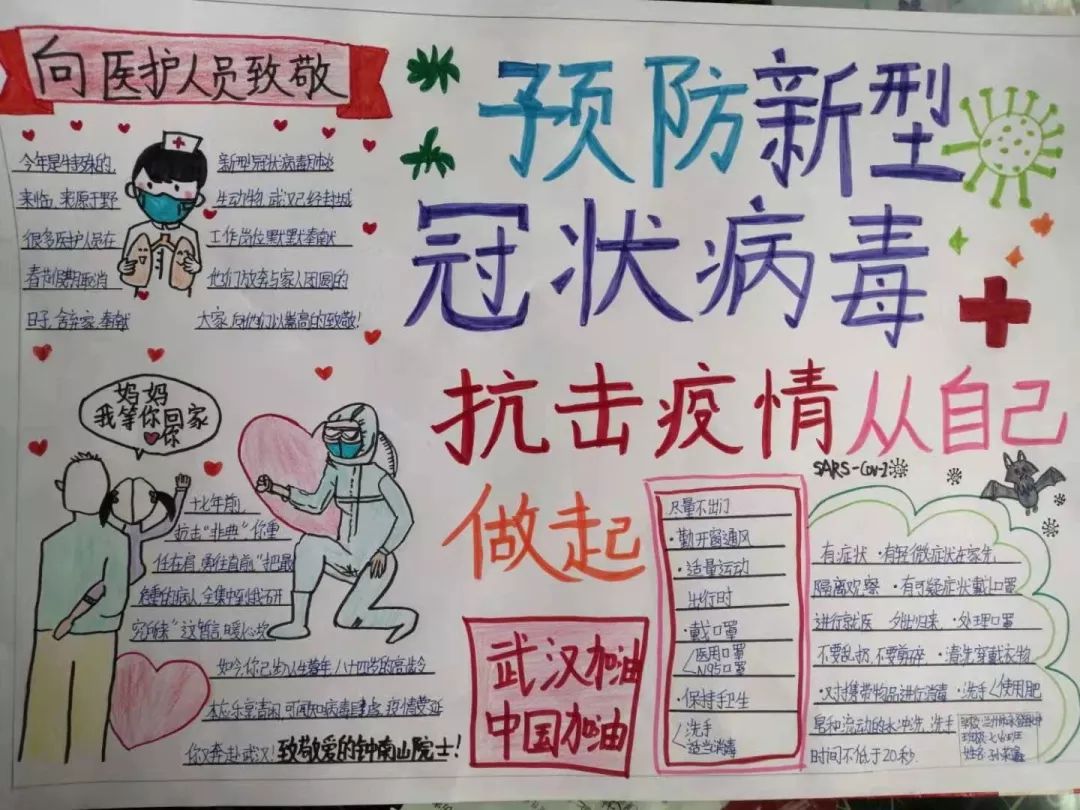 向医护人员致敬
今年是特殊的
新型冠状病毒肺炎
来临、来原于野
生动物,武汉已经封城
很多医护人员在
工作岗位默默奉献
春节假期取消
他们放弃与家人团圆的
日子,舍弃家,奉献
大家,向他们以崇高的致敬!
预防新型
冠状病毒
抗击疫情从自己
做起
妈妈
我等你回家
你
十七年前,
抗击“非典”你重
任在肩,勇往直前“把最
危重的病人全集中到我研
究所来”这誓言暖心坎
如今,你已步入生暮年,八十四岁的高龄
本应乐享清闲,可闻知病毒肆虐,疫情蔓延
你又奔赴武汉!致敬爱的钟南山院士!
武汉加油
中国加油
尽量不出门
·勤开窗通风
·适量运动
出行时
·戴口罩
医用口罩
N95口罩
·保持手卫生
洗手
适当消毒
SARS-Cov-2
有症状 ·有轻微症状在家先
隔离观察 ·有可疑症状戴口罩
进行就医 外出归来 ·处理口罩
不要乱扔,不要剪碎 ·清洗穿戴衣物
·对携带物品进行消毒 ·洗手<使用肥
皂和流动的水冲洗,洗手
时间不低于20秒.